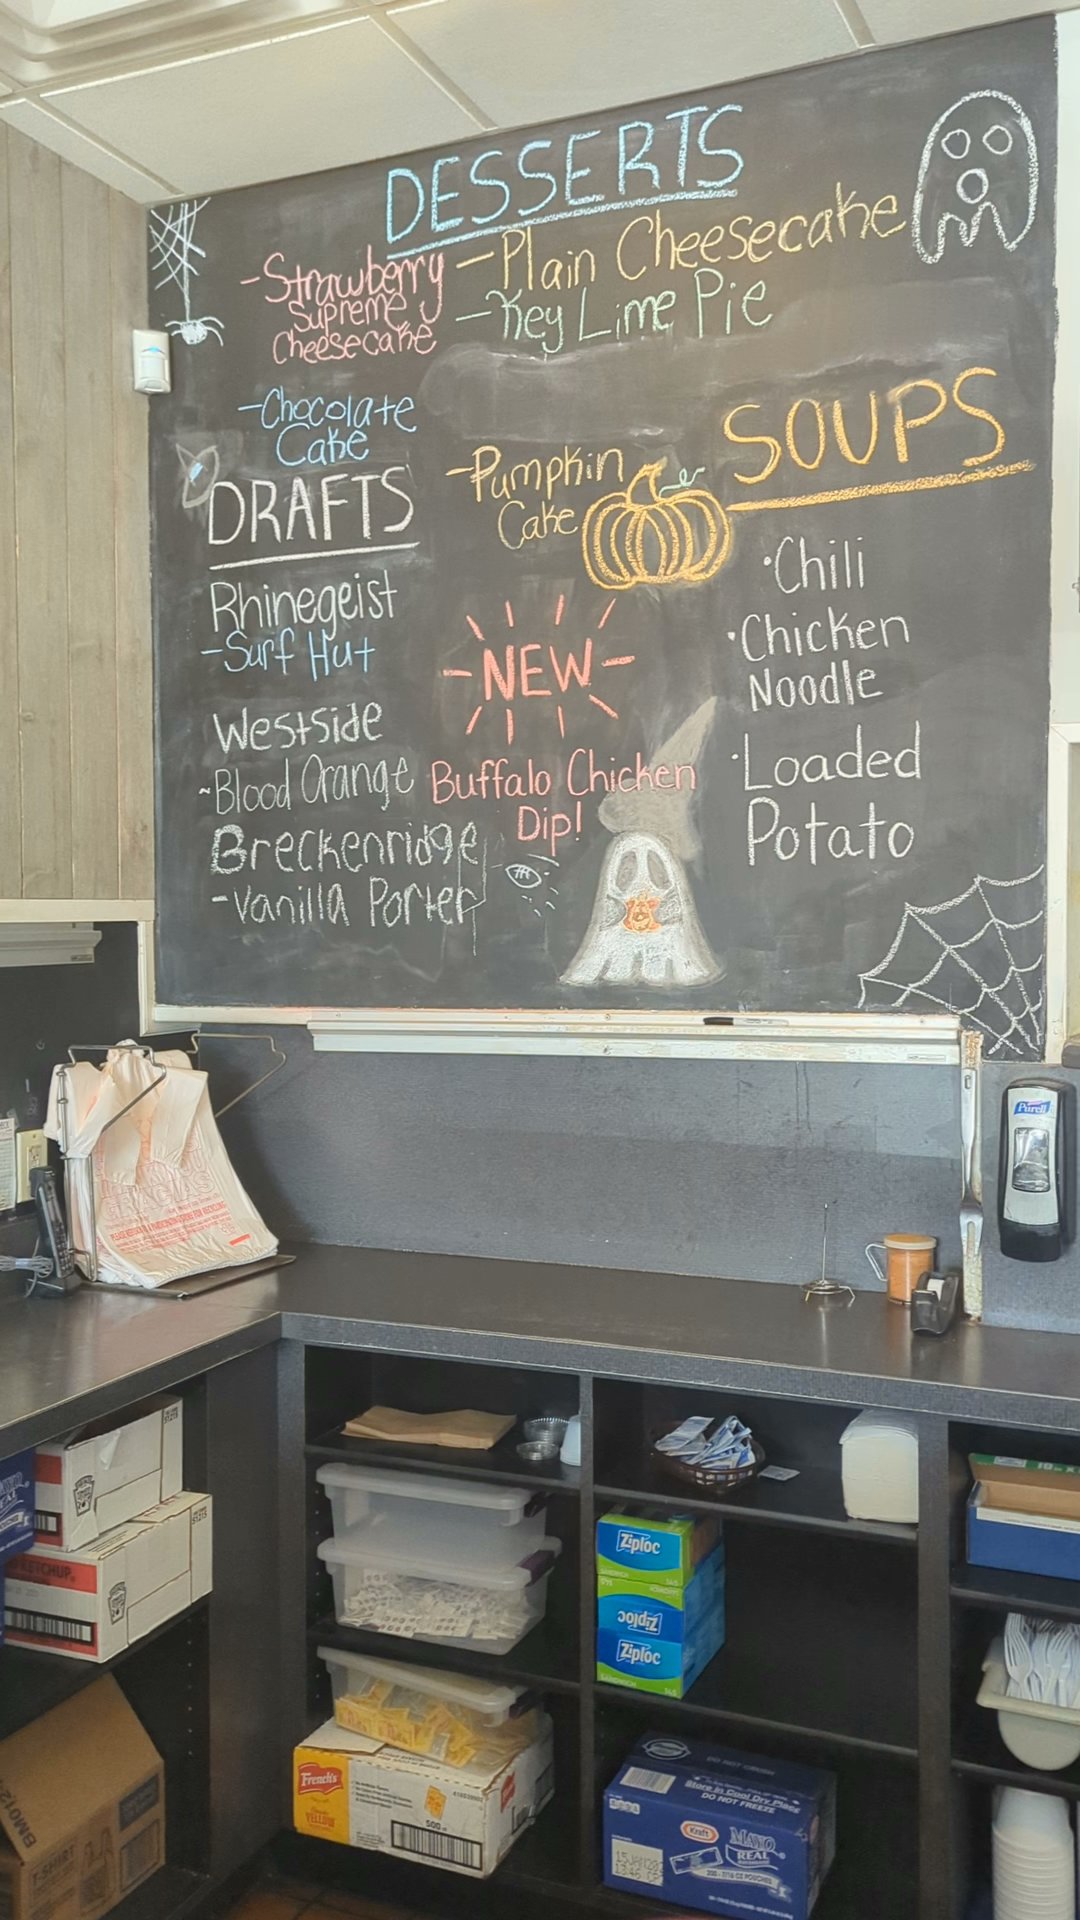 DESSERTS
-Strawberry
Supreme
Cheesecake
-Plain Cheesecake
-Key Lime Pie
-Chocolate
Cake
-Pumpkin
Cake
DRAFTS
Rhinegeist
-Surf Hut
Westside
~Blood Orange
Breckenridge
-Vanilla Porter
NEW
Buffalo Chicken
Dip!
SOUPS
·Chili
·Chicken
Noodle
·Loaded
Potato
Purell
KETCHUP
Ziploc
SANDWICH
Ziploc
Ziploc
SANDWICH
French's
YELLOW
500
DO NOT CRUSH
Store in Cool Dry Place
DO NOT FREEZE
Kraft
MAYO
REAL
T-SHIRT